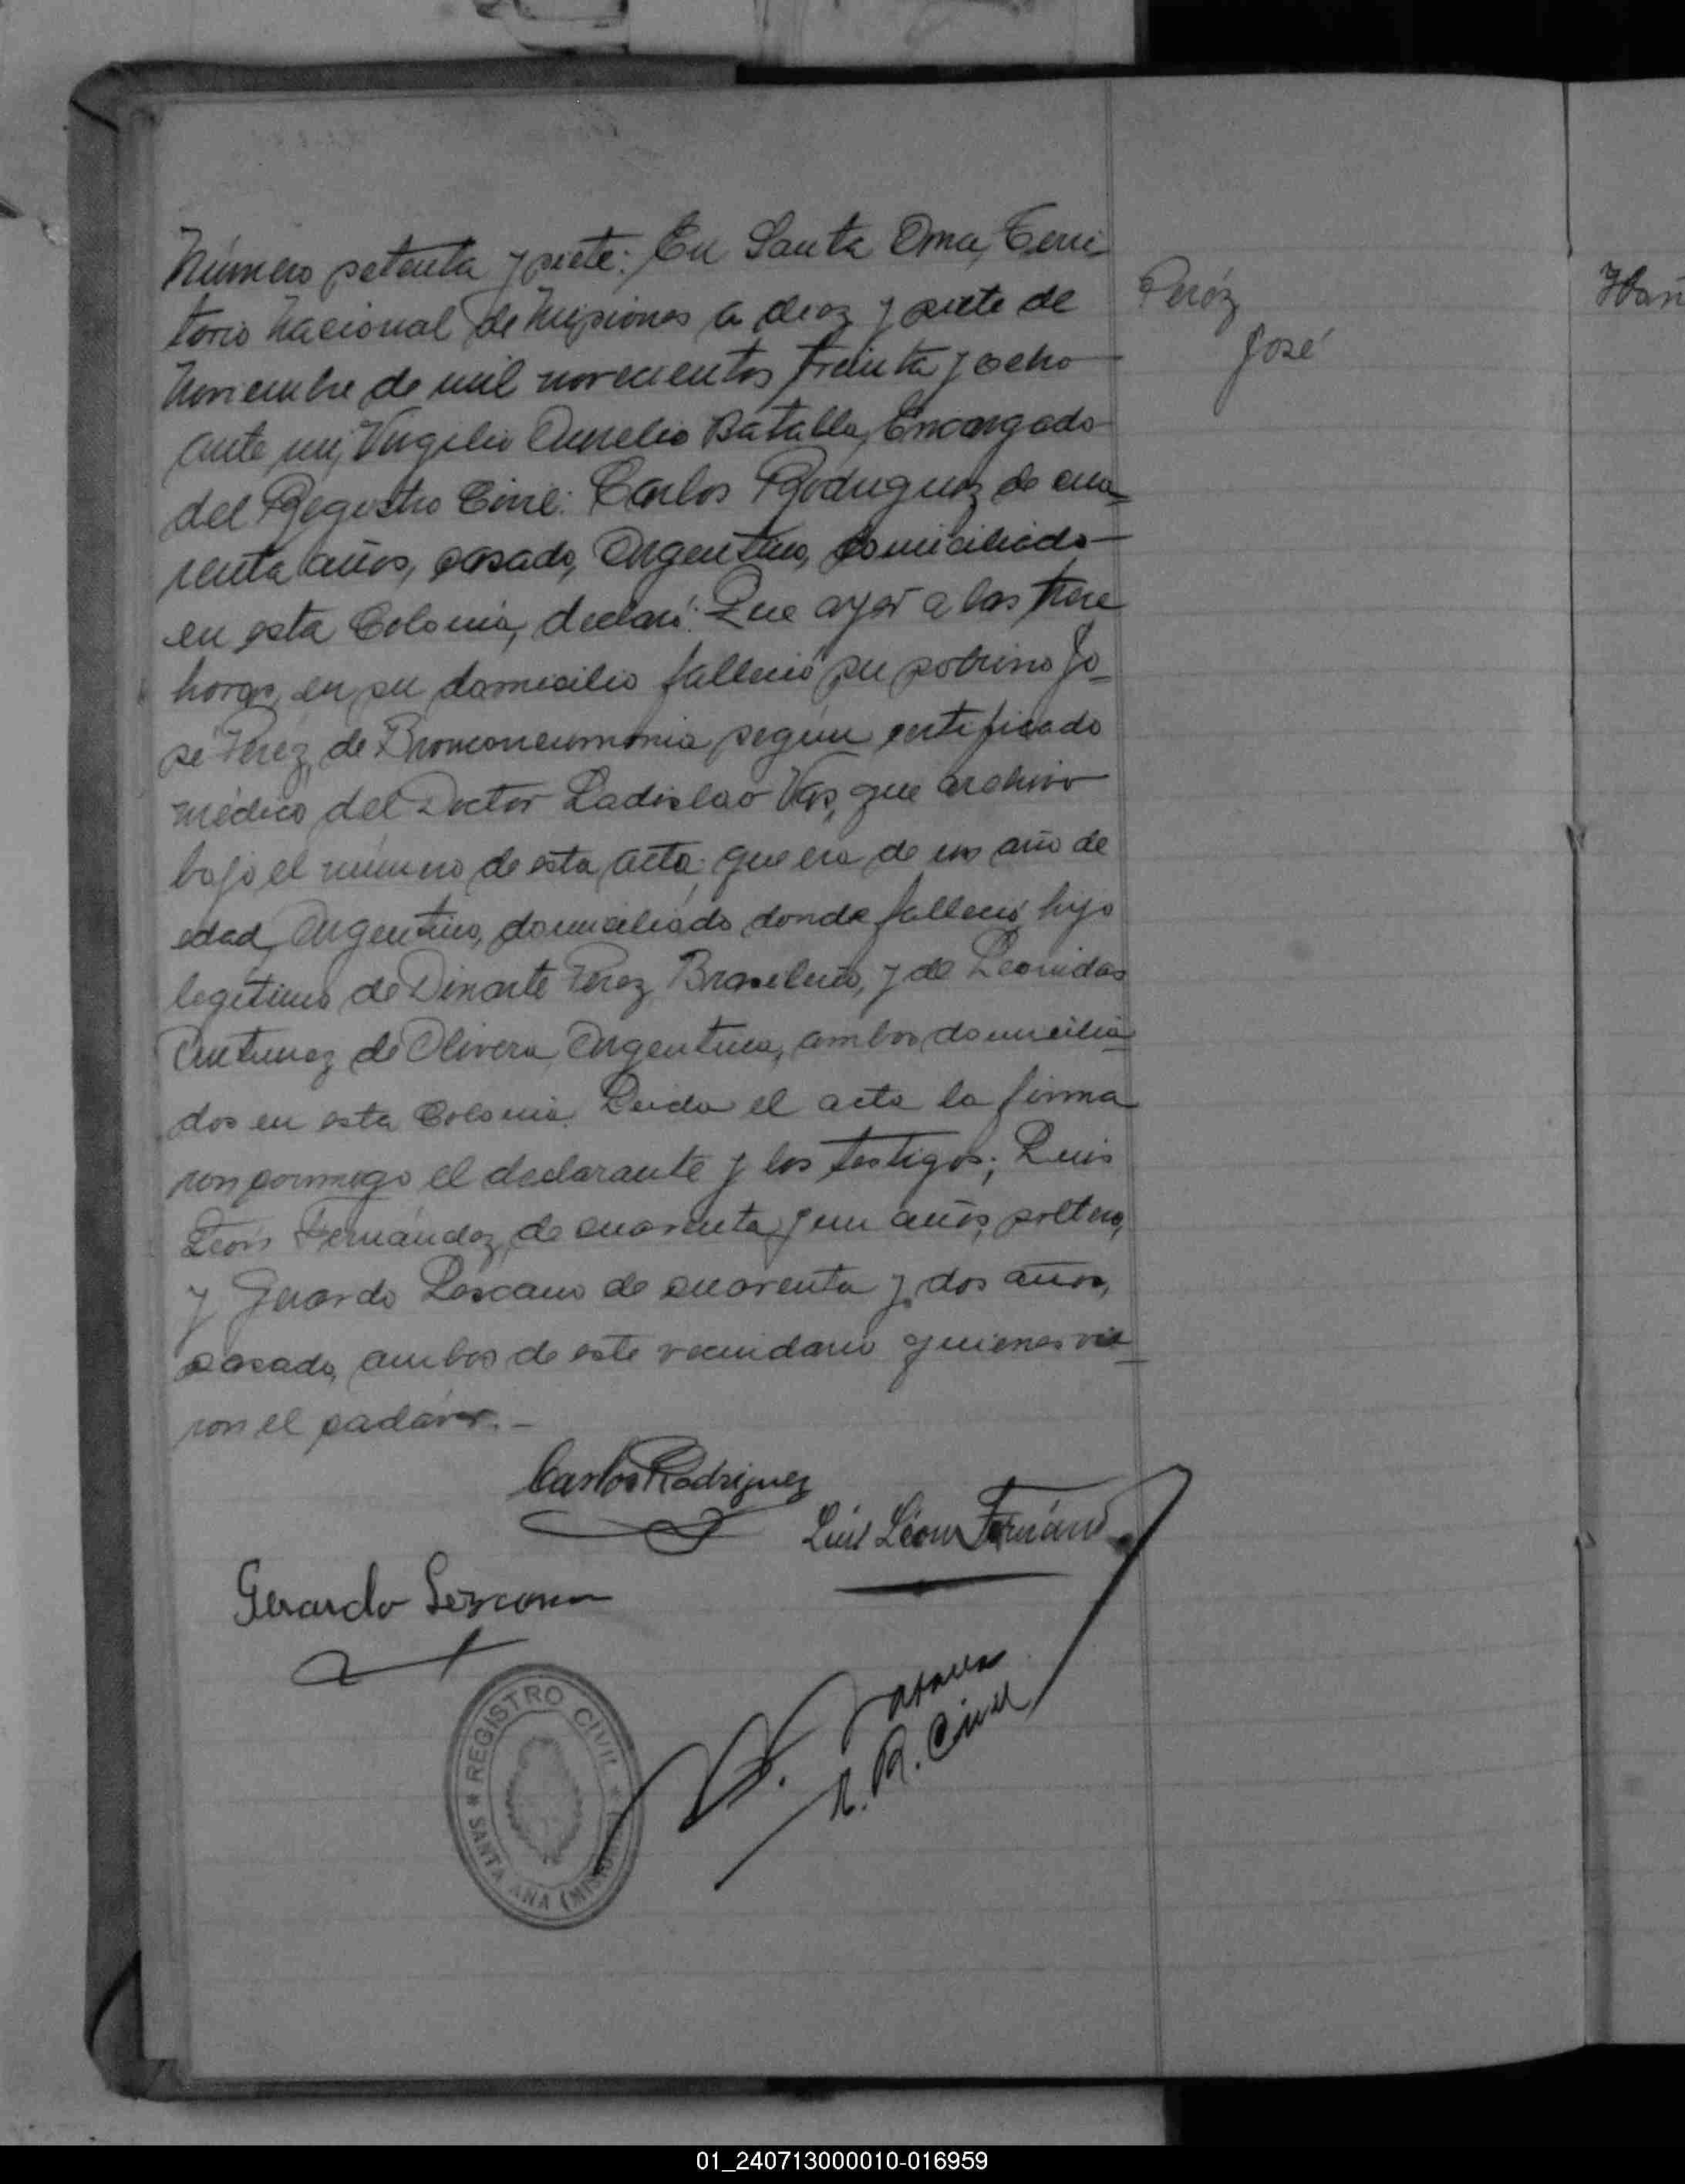 Número setenta y siete: En Santa Ana, Terri-
torio Nacional de Misiones a diez y siete de
Noviembre de mil novecientos treinta y ocho
ante mi, Virgilio Aurelio Batalla, Encargado
del Registro Civil: Carlos Rodriguez de cua-
renta años, casado, Argentino, domiciliado
en esta Colonia, declaró: Que ayer a las trece
horas, en su domicilio falleció su sobrino Jo-
sé Pérez, de Bronconeumonia según certificado
médico del Doctor Ladislao Vas, que archivo
bajo el número de esta acta; que era de un año de
edad, Argentino, domiciliado donde falleció, hijo
legítimo de Dinarte Perez, Brasileño, y de Leonidas
Antunez de Olivera, Argentina, ambos domicilia-
dos en esta Colonia. Leida el acta la firma
ron conmigo el declarante y los testigos; Luis
León Fernández, de cuarenta y un años, soltero,
y Gerardo Lescano de cuarenta y dos años,
casado, ambos de este vecindario quienes vie-
ron el cadáver.-
Peréz
José
Carlos Rodriguez
Luis León Fernánd
Gerardo Lezcano
V. Batalla
R. Civil
REGISTRO CIVIL
SANTA ANA
01_240713000010-016959